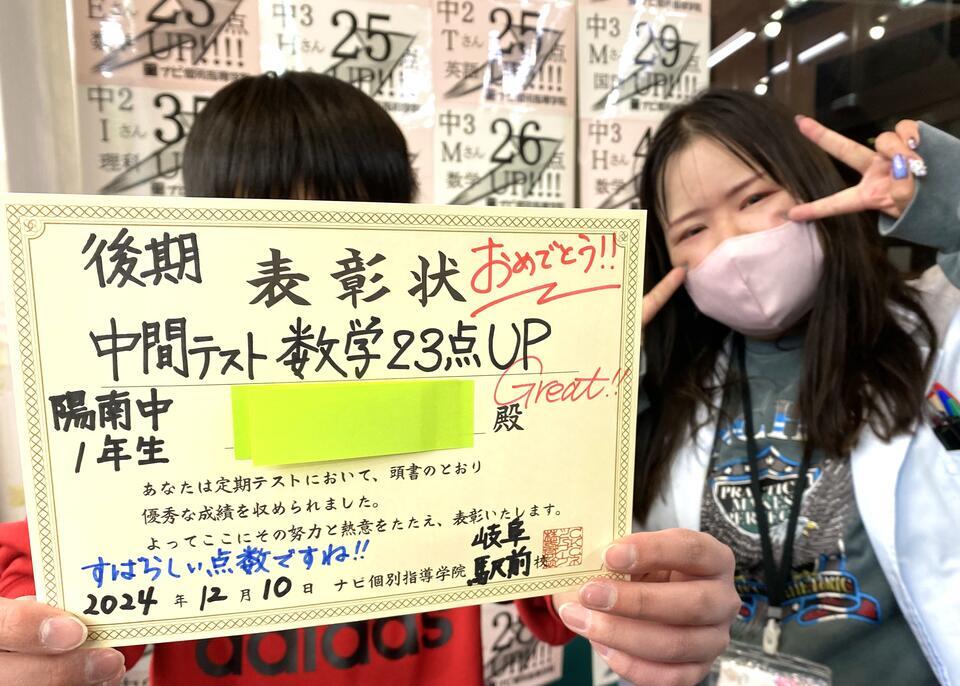 23点
UP!!!!
ナビ個別指導学院
中3
Hさん
25点
UP!!!!
ナビ個別指導学院
中2
Tさん
英語
25点
UP!!!!
ナビ個別指導学院
中3
Mさん
29点
UP!!!!
ナビ個別指導学院
中2
Iさん
理科
中3
Mさん
数学
26点
UP!!!!
中3
Hさん
後期
表彰状
おめでとう!!
中間テスト 数学23点UP
Great!!
陽南中
1年生
殿
あなたは定期テストにおいて、頭書のとおり
優秀な成績を収められました。
よってここにその努力と熱意をたたえ、表彰いたします。
すばらしい点数ですね!!
岐阜
駅前校
2024年12月10日 ナビ個別指導学院
adidas
PRACTIC
28